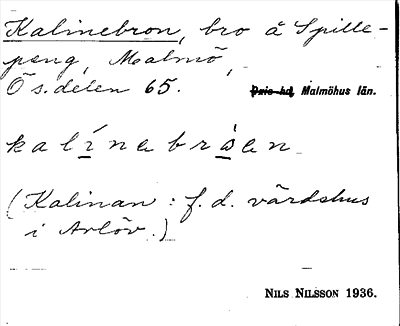 Kalinebron, bro å Spille-
peng, Malmö,
Ö s. delen 65.
Malmöhus län.
kalínebrὼen
(Kalinan : f. d. värdshus
i Arlöv.)
NILS NILSSON 1936.